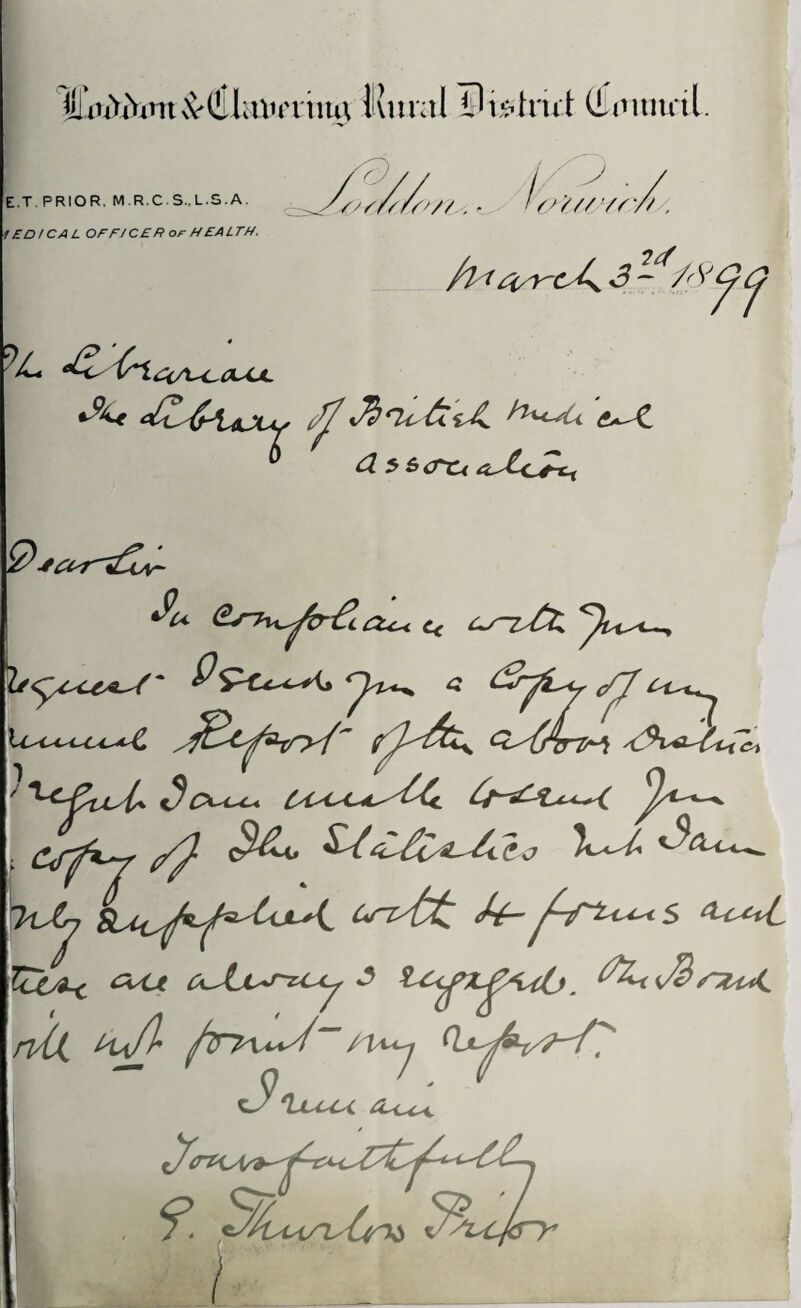 Loddon & Clavering Rural District Council.
E.T. PRIOR, M.R.C.S., L.S.A.
MEDICAL OFFICER OF HEALTH.
Loddon, Norwich,
March 3rd 1899
The Librarian
The Library of British Medical
Association
Dear Sir
In compliance with your
request I send you a Copy of my
annual Report of the above
I am unable to send you
a copy of the Statistics but I am
only supplied with the forms and
these are always required. The Board
will not print my Report.
I remain
Yours faithfully
E. Thurlow Prior